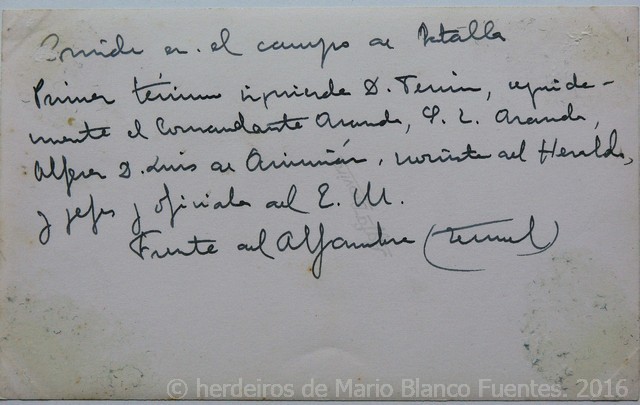 Comida en el campo de batalla
Primer término izquierda D. Terin, seguida-
mente el Comandante Aranda, G. L. Aranda,
Alferez D. Luis de Armiñán, novista del Heraldo,
y jefes y oficiales del E. M.
Frente del Alfambra (Teruel)
© herdeiros de Mario Blanco Fuentes. 2016